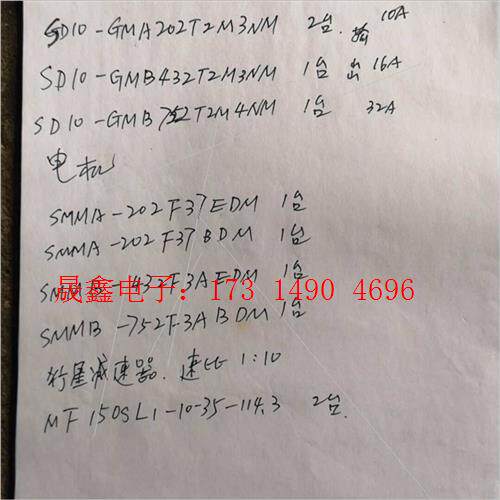 SD10-GMA202T2M3NM 2台. 输 10A
SD10-GMB432T2M3NM 1台 出 16A
SD10-GMB752T2M4NM 1台 32A
电机
SMMA-202F37EDM 1台
SMMA-202F37BDM 1台
SMMB-432F3AEDM 1台
晟鑫电子：173 1490 4696
SMMB-752F3ABDM 1台
行星减速器. 速比 1:10
MF150SL1-10-35-114.3 2台.